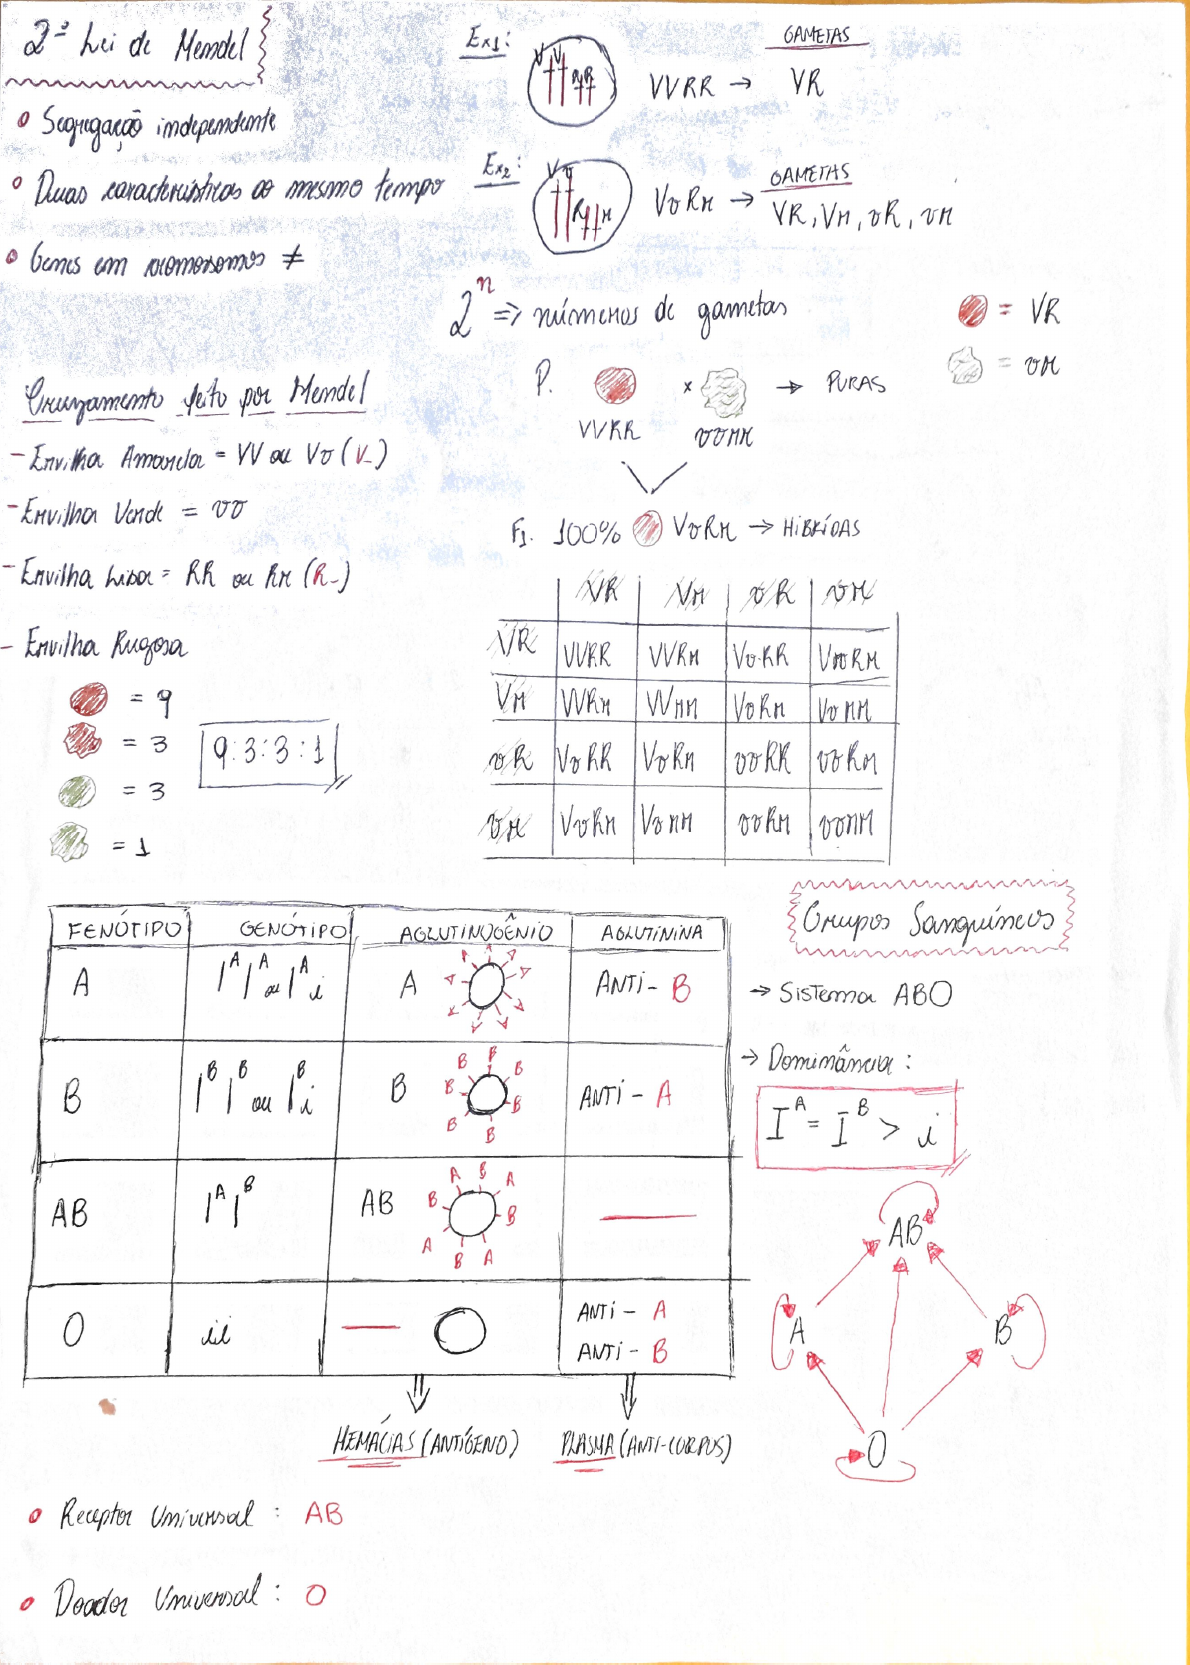 2ª Lei de Mendel
° Segregação independente
° Duas características ao mesmo tempo
° Genes em cromossomos ≠
Ex1:
V V
R R
VVRR →
GAMETAS
VR
Ex2:
V v
R r
VvRr →
GAMETAS
VR, Vr, vR, vr
2ⁿ => números de gametas
= VR
= vr
P. × → PURAS
VVRR vvrr
F1. 100% VvRr → HíBRíDAS
Cruzamento feito por Mendel
- Ervilha Amarela = VV ou Vv (V_)
- Ervilha Verde = vv
- Ervilha Lisa = RR ou Rr (R_)
- Ervilha Rugosa
= 9
= 3
= 3
= 1
9:3:3:1
VR Vr vR vr
VR VVRR VVRr VvRR VvRr
Vr VVRr VVrr VvRr Vvrr
vR VvRR VvRr vvRR vvRr
vr VvRr Vvrr vvRr vvrr
Grupos Sanguíneos
→ Sistema ABO
→ Dominância:
Iᴬ = Iᴮ > i
FENÓTIPO GENÓTIPO AGLUTINOGÊNIO AGLUTININA
A Iᴬ Iᴬ ou Iᴬ i A ANTi - B
A A A A A A A A A
B Iᴮ Iᴮ ou Iᴮ i B ANTi - A
B B B B B B B
AB Iᴬ Iᴮ AB —
A B A B B A B A
O ii — ANTi - A
ANTi - B
HEMÁCIAS (ANTÍGENO) PLASMA (ANTI-CORPOS)
AB
A B
O
° Receptor Universal: AB
° Doador Universal: O